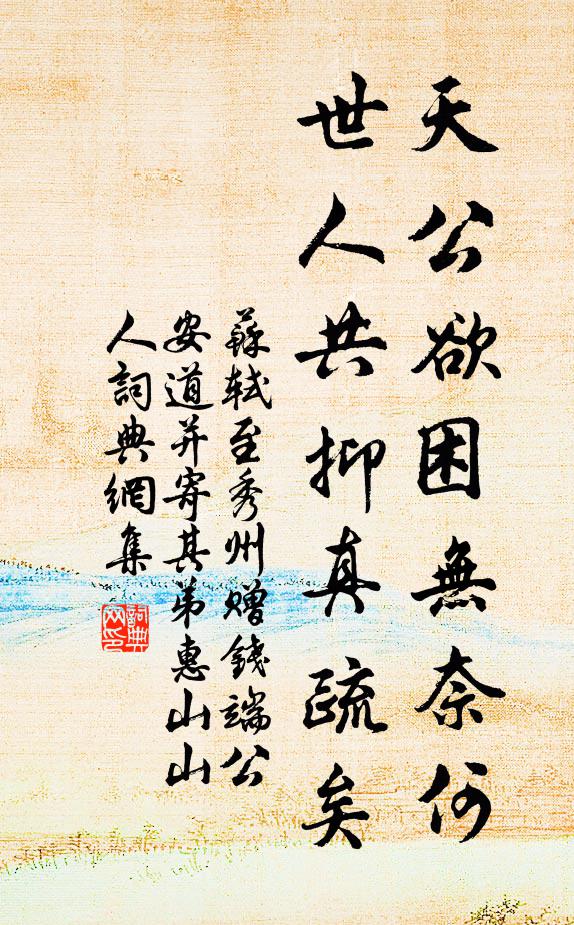 天公欲困無奈何
世人共抑真疏矣
蘇軾至秀州贈錢端公
安道并寄其弟惠山山
人詞典網集
詞典網印